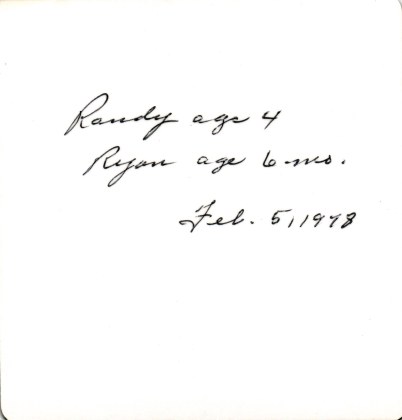 Randy age 4
Ryan age 6 mo.
Feb. 5, 1978